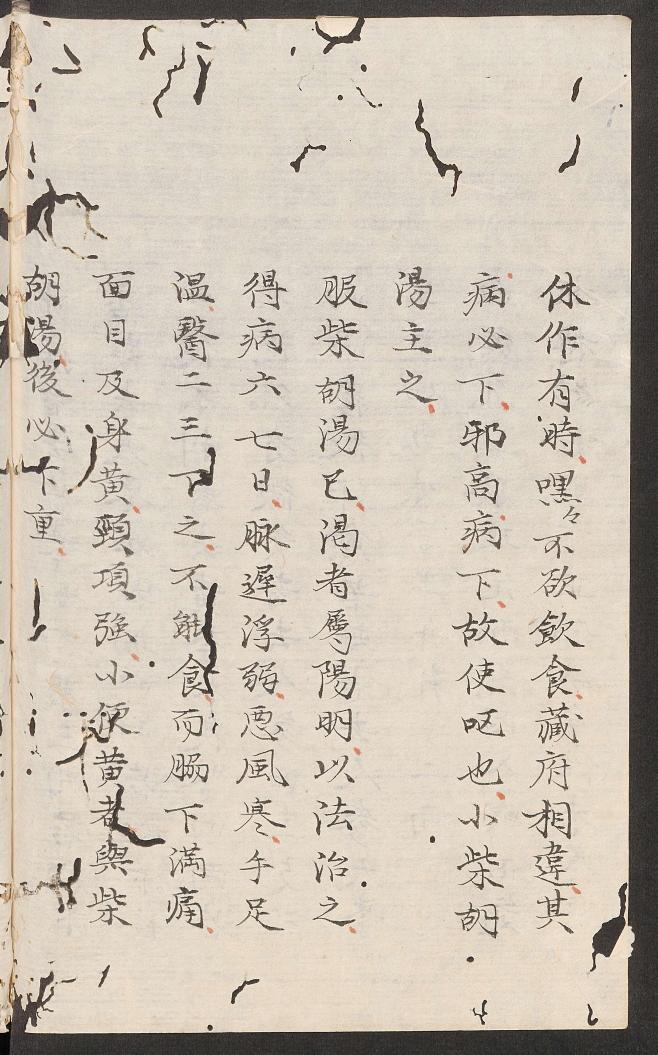 休作有時嘿々不欲飲食藏府相違其
病必下邪高病下故使呕也小柴胡
湯主之
服柴胡湯已渇者属陽明以法治之
得病六七日脉遲浮弱悪風寒手足
温醫二三下之不能食而脇下満痛
面目及身黄頸項強小便黄者與柴
胡湯後必下重